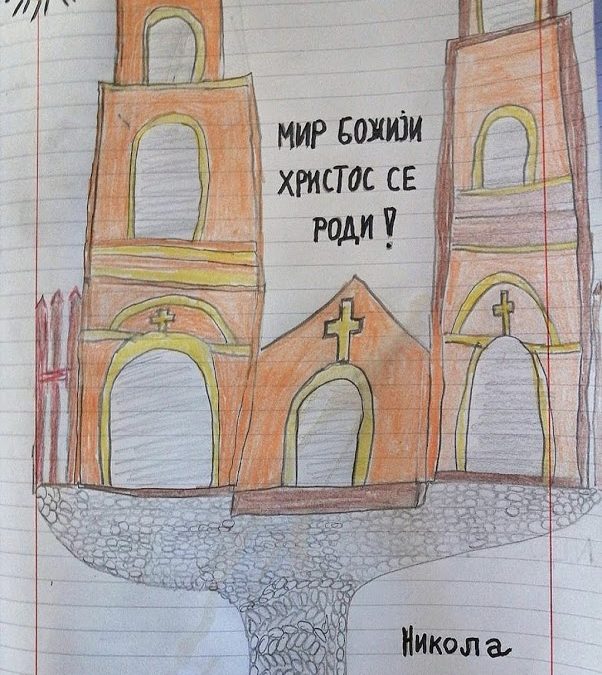 МИР БОЖИЈИ
ХРИСТОС СЕ
РОДИ!
Никола